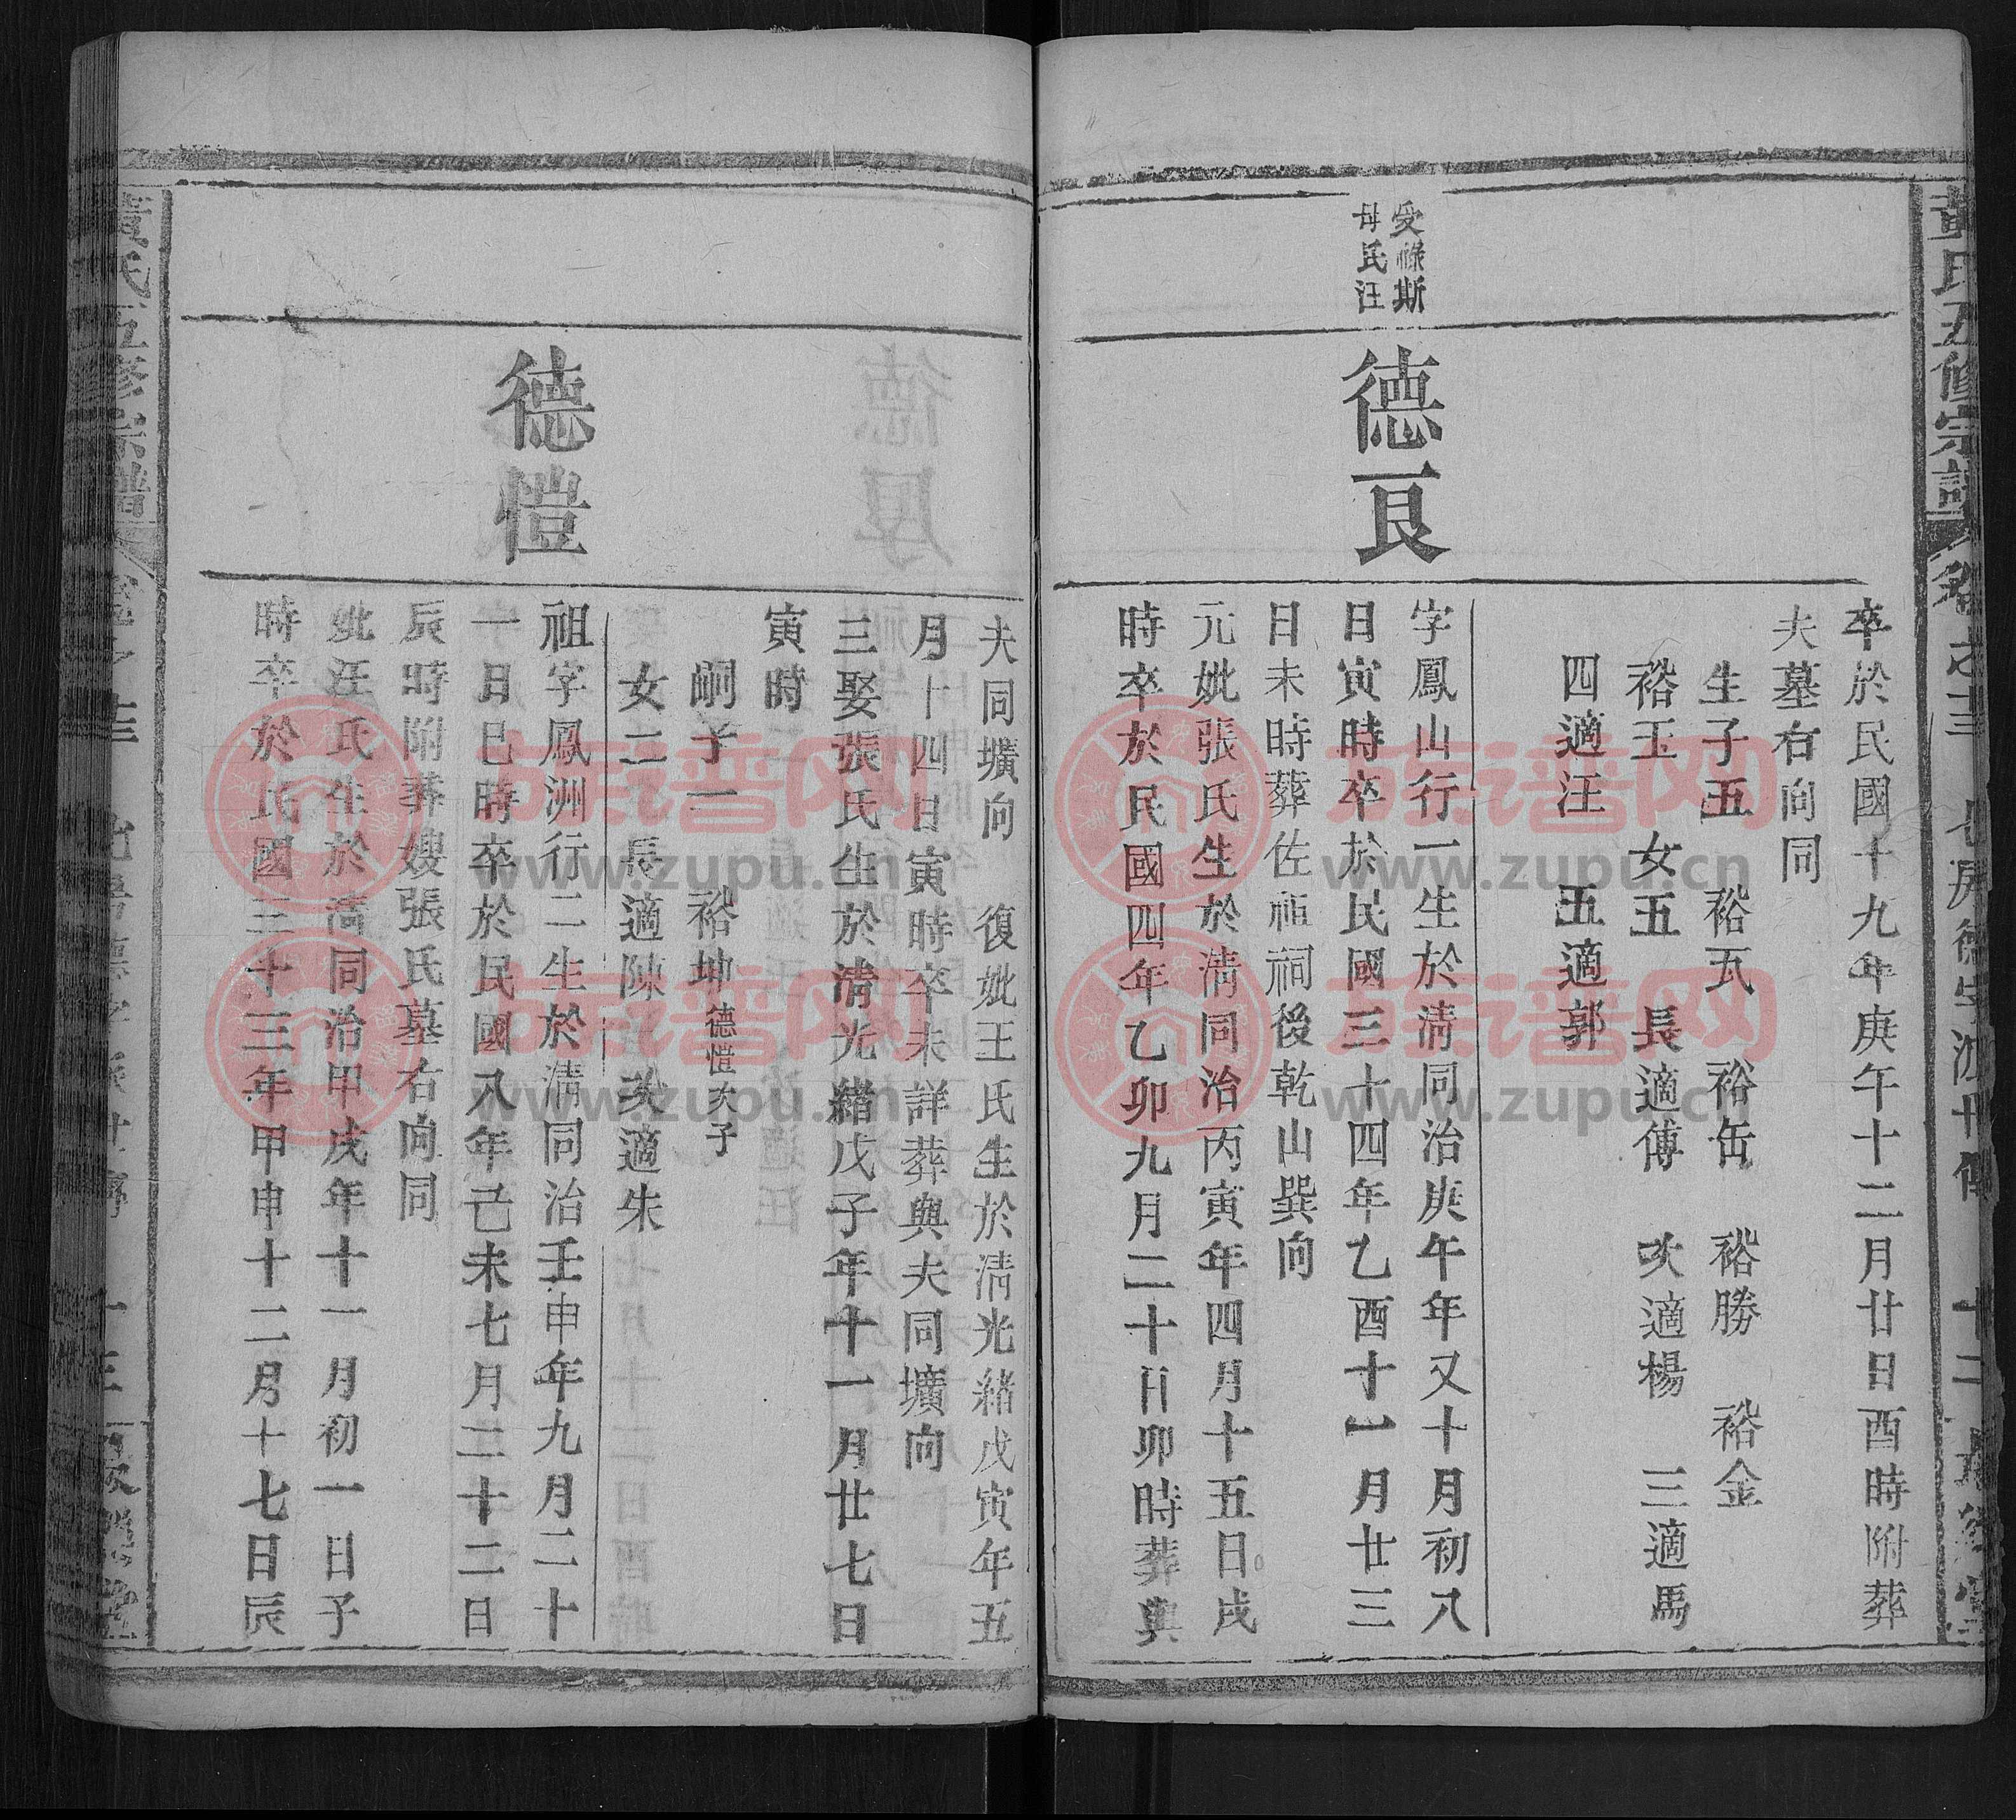 黃氏五修宗譜
卷之十三
卒於民國十九年庚午十二月廿日酉時附葬
夫墓右向同
生子五 裕瓦 裕缶 裕勝 裕金
裕玉 女五 長適傅 次適楊 三適馬
四適汪 五適郭
受祿斯
母氏汪
德良
字鳳山行一生於清同治庚午年又十月初八
日寅時卒於民國三十四年乙酉十一月廿三
日未時葬佐祖祠後乾山巽向
元妣張氏生於清同治丙寅年四月十五日戌
時卒於民國四年乙卯九月二十日卯時葬與
夫同壙向 復妣王氏生於清光緒戊寅年五
月十四日寅時卒未詳葬與夫同壙向
三娶張氏生於清光緒戊子年十一月廿七日
寅時
嗣子一 裕坤 德愷次子
女二 長適陳 次適朱
德愷
祖字鳳洲行二生於清同治壬申年九月二十
一日巳時卒於民國八年己未七月二十二日
辰時附葬嫂張氏墓右向同
妣汪氏生於清同治甲戌年十一月初一日子
時卒於民國三十三年甲申十二月十七日辰
黃氏五修宗譜
族谱网
www.zupu.cn
族谱网
www.zupu.cn
族谱网
www.zupu.cn
族谱网
www.zupu.cn